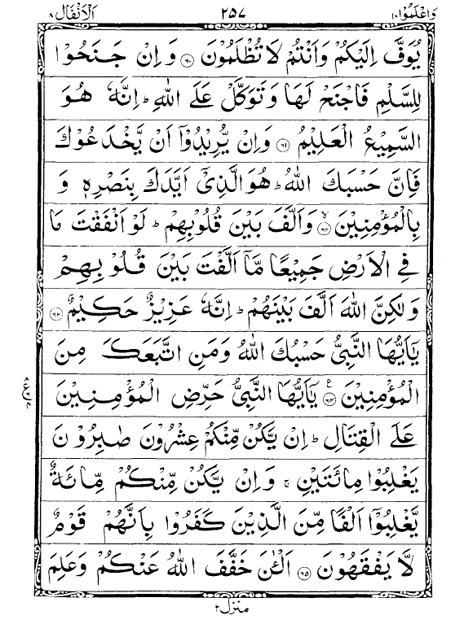 وَاعْلَمُوْۤا ١٠ ٢٥٧ اَلْاَنْفَال ٨
يُوَفَّ اِلَيْكُمْ وَاَنْتُمْ لَا تُظْلَمُوْنَ ﴿٦٠﴾ وَاِنْ جَنَحُوْا
لِلسَّلْمِ فَاجْنَحْ لَهَا وَتَوَكَّلْ عَلَى اللّٰهِ ؕ اِنَّهٗ هُوَ
السَّمِيْعُ الْعَلِيْمُ ﴿٦١﴾ وَاِنْ يُّرِيْدُوْۤا اَنْ يَّخْدَعُوْكَ
فَاِنَّ حَسْبَكَ اللّٰهُ ؕ هُوَ الَّذِيْۤ اَيَّدَكَ بِنَصْرِهٖ وَ
بِالْمُؤْمِنِيْنَ ﴿٦٢﴾ وَاَلَّفَ بَيْنَ قُلُوْبِهِمْ ؕ لَوْ اَنْفَقْتَ مَا
فِي الْاَرْضِ جَمِيْعًا مَّاۤ اَلَّفْتَ بَيْنَ قُلُوْبِهِمْ
وَلٰكِنَّ اللّٰهَ اَلَّفَ بَيْنَهُمْ ؕ اِنَّهٗ عَزِيْزٌ حَكِيْمٌ ﴿٦٣﴾
يٰۤاَيُّهَا النَّبِيُّ حَسْبُكَ اللّٰهُ وَمَنِ اتَّبَعَكَ مِنَ
الْمُؤْمِنِيْنَ ﴿٦٤﴾ يٰۤاَيُّهَا النَّبِيُّ حَرِّضِ الْمُؤْمِنِيْنَ
عَلَى الْقِتَالِ ؕ اِنْ يَّكُنْ مِّنْكُمْ عِشْرُوْنَ صٰبِرُوْنَ
يَغْلِبُوْا مِائَتَيْنِ ۚ وَاِنْ يَّكُنْ مِّنْكُمْ مِّائَةٌ
يَّغْلِبُوْۤا اَلْفًا مِّنَ الَّذِيْنَ كَفَرُوْا بِاَنَّهُمْ قَوْمٌ
لَّا يَفْقَهُوْنَ ﴿٦٥﴾ اَلْـٰٔنَ خَفَّفَ اللّٰهُ عَنْكُمْ وَعَلِمَ
منزل ٢